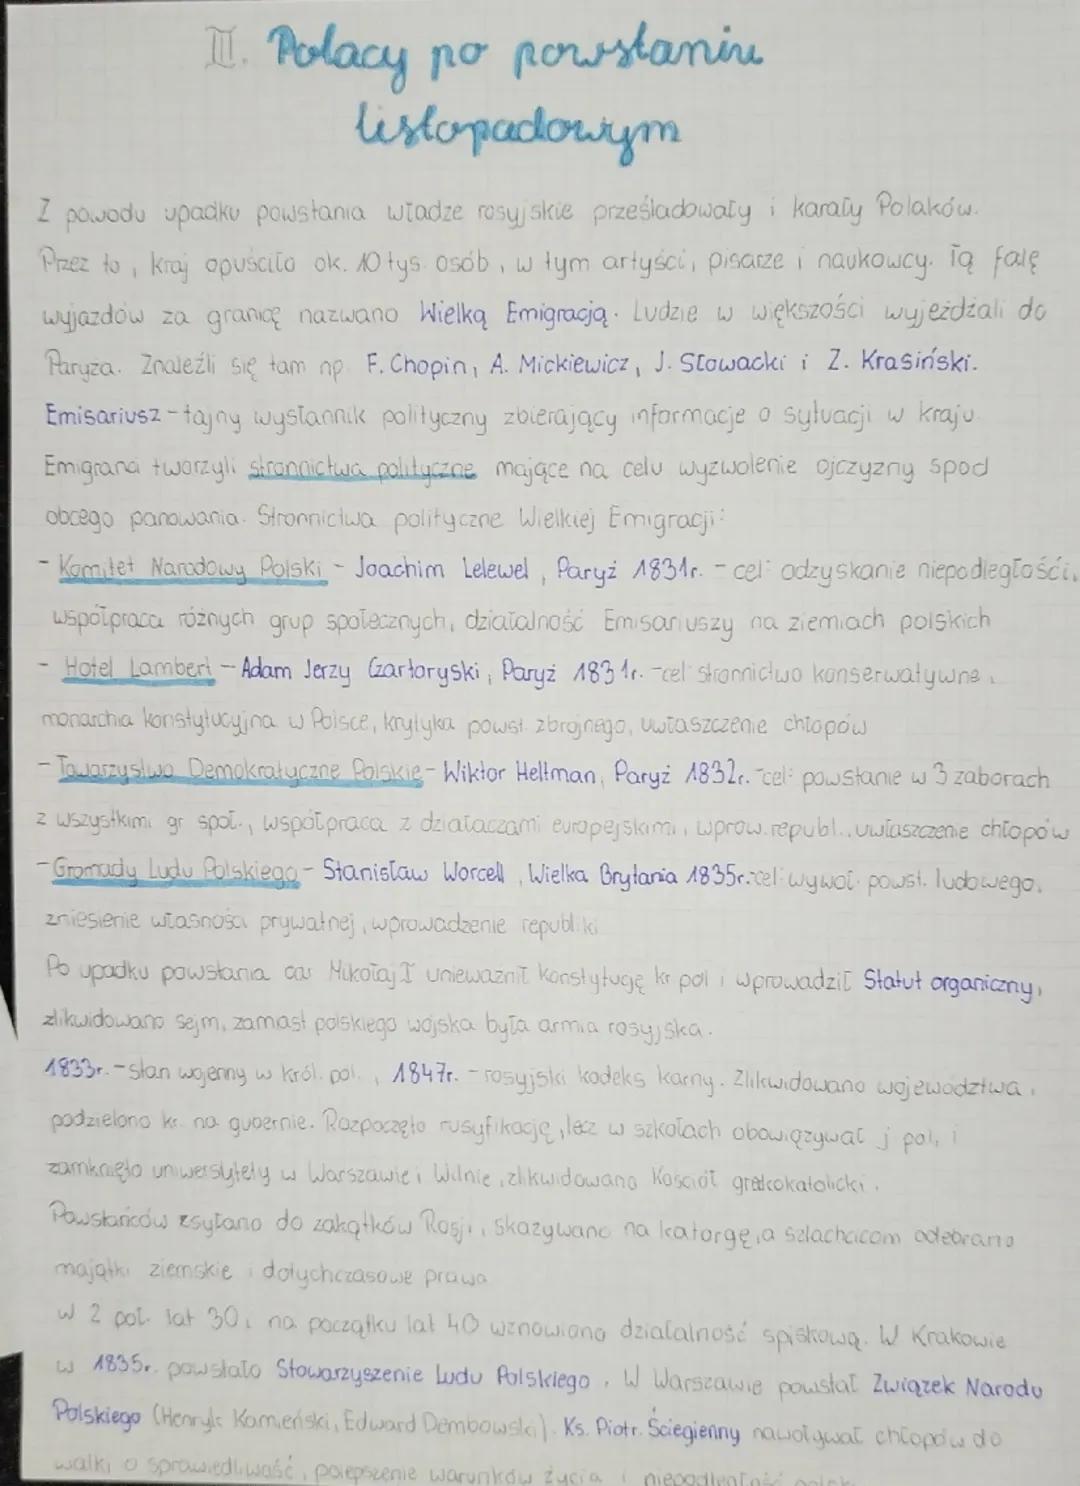 II. Polacy po powstaniu
listopadowym
Z powodu upadku powstania władze rosyjskie prześladowały i karały Polaków.
Przez to, kraj opuściło ok. 10 tys. osób, w tym artyści, pisarze i naukowcy. Tą falę
wyjazdów za granicę nazwano Wielką Emigracją. Ludzie w większości wyjeżdżali do
Paryża. Znaleźli się tam np. F. Chopin, A. Mickiewicz, J. Słowacki i Z. Krasiński.
Emisariusz - tajny wysłannik polityczny zbierający informacje o sytuacji w kraju.
Emigranci tworzyli stronnictwa polityczne mające na celu wyzwolenie ojczyzny spod
obcego panowania. Stronnictwa polityczne Wielkiej Emigracji:
- Komitet Narodowy Polski - Joachim Lelewel, Paryż 1831r. - cel: odzyskanie niepodległości,
współpraca różnych grup społecznych, działalność Emisariuszy na ziemiach polskich
- Hotel Lambert - Adam Jerzy Czartoryski, Paryż 1831r. - cel: stronnictwo konserwatywne,
monarchia konstytucyjna w Polsce, krytyka powst. zbrojnego, uwłaszczenie chłopów
- Towarzystwo Demokratyczne Polskie - Wiktor Heltman, Paryż 1832r. - cel: powstanie w 3 zaborach
z wszystkimi gr. społ., współpraca z działaczami europejskimi, wprow. republ., uwłaszczenie chłopów
- Gromady Ludu Polskiego - Stanisław Worcell, Wielka Brytania 1835r. - cel: wywoł. powst. ludowego,
zniesienie własności prywatnej, wprowadzenie republiki
Po upadku powstania car Mikołaj I unieważnił konstytucję kr. pol. i wprowadził Statut organiczny,
zlikwidowano sejm, zamiast polskiego wojska była armia rosyjska.
1833r. - stan wojenny w król. pol., 1847r. - rosyjski kodeks karny. Zlikwidowano województwa,
podzielono kr. na gubernie. Rozpoczęto rusyfikację, lecz w szkołach obowiązywał j. pol., i
zamknięto uniwersytety w Warszawie i Wilnie, zlikwidowano Kościół grekokatolicki.
Powstańców zsyłano do zakątków Rosji, skazywano na katorgę, a szlachcicom odebrano
majątki ziemskie i dotychczasowe prawa
w 2 poł. lat 30. i na początku lat 40 wznowiono działalność spiskową. W Krakowie
w 1835r. powstało Stowarzyszenie Ludu Polskiego. W Warszawie powstał Związek Narodu
Polskiego (Henryk Kamieński, Edward Dembowski). Ks. Piotr. Ściegienny nawoływał chłopów do
walki o sprawiedliwość, polepszenie warunków życia i niepodległość